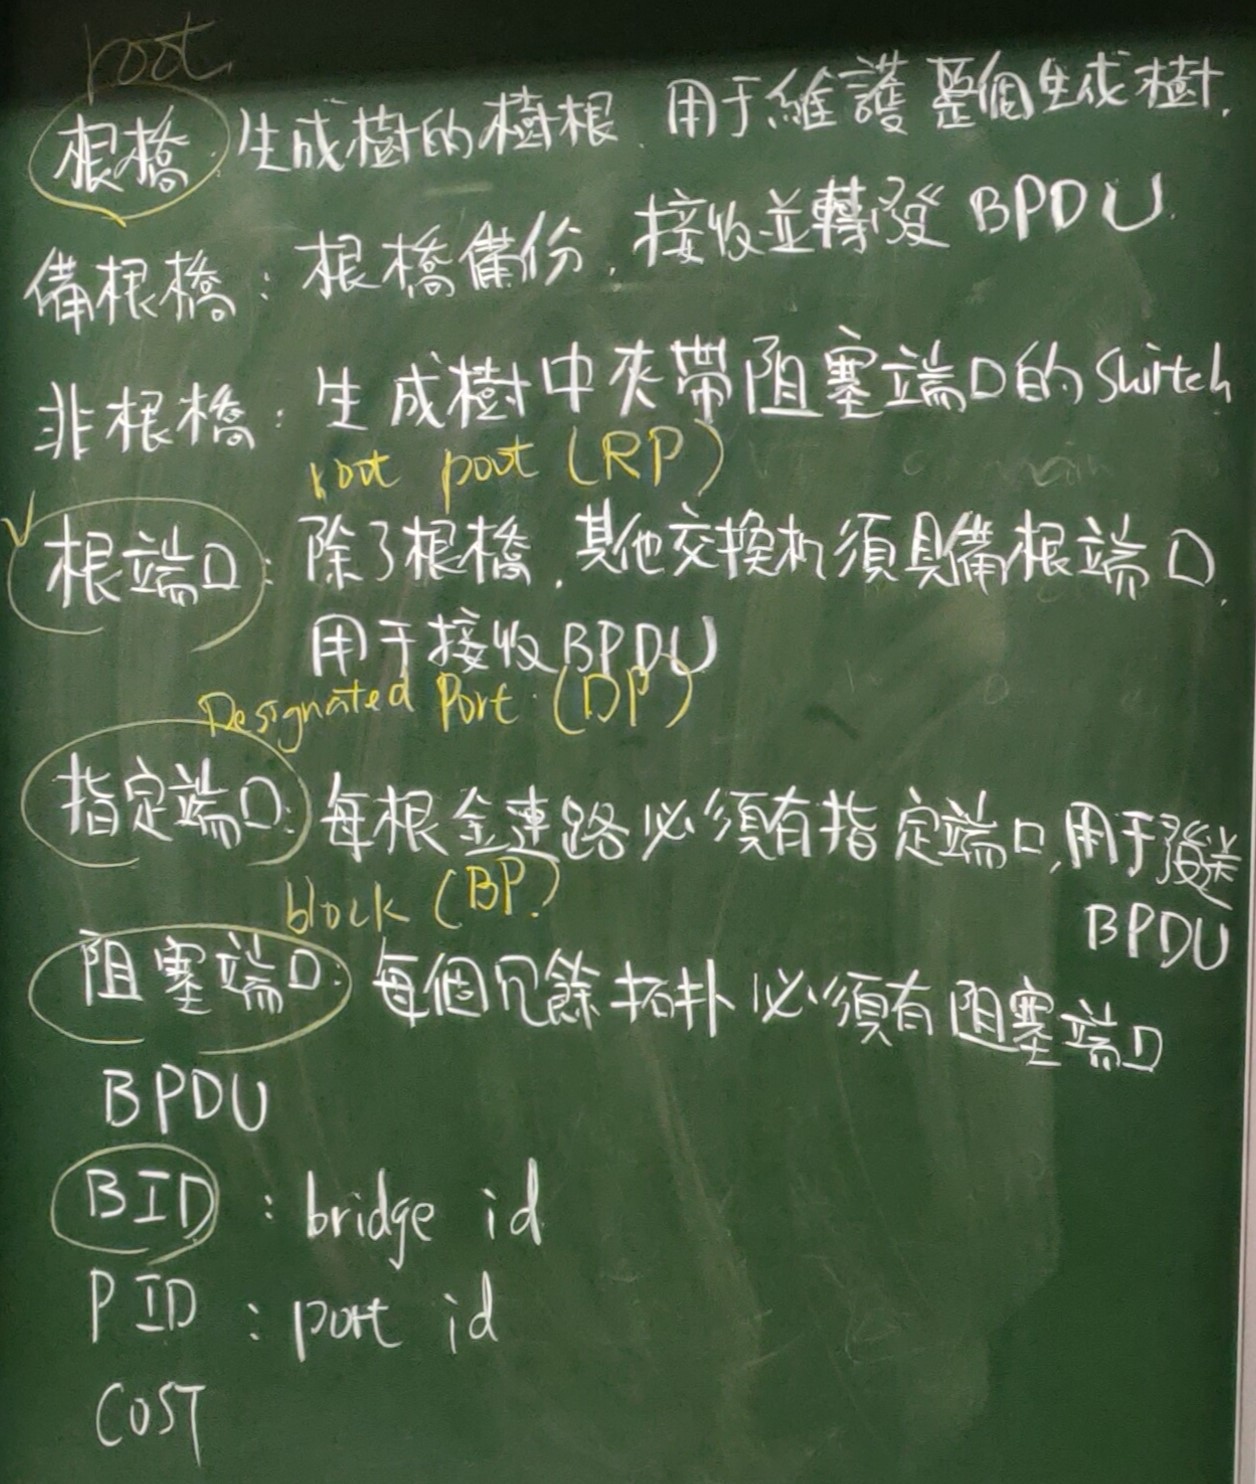 root
根橋:生成樹的樹根、用于維護整個生成樹.
備根橋:根橋備份,接收並轉發BPDU.
非根橋:生成樹中夾帶阻塞端口的Switch
root port (RP)
根端口:除了根橋,其他交換机須具備根端口,
用于接收BPDU
Designated Port (DP)
指定端口:每根金連路必須有指定端口,用于發送
BPDU
block (BP)
阻塞端口:每個冗餘拓扑必須有阻塞端口
BPDU
BID : bridge id
PID : port id
COST